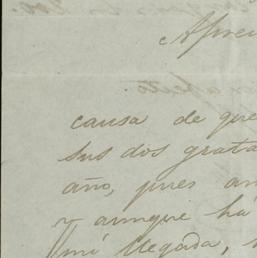 Aprec
causa de que
sus dos grata
año, pues an
y aunque há
mi llegada,